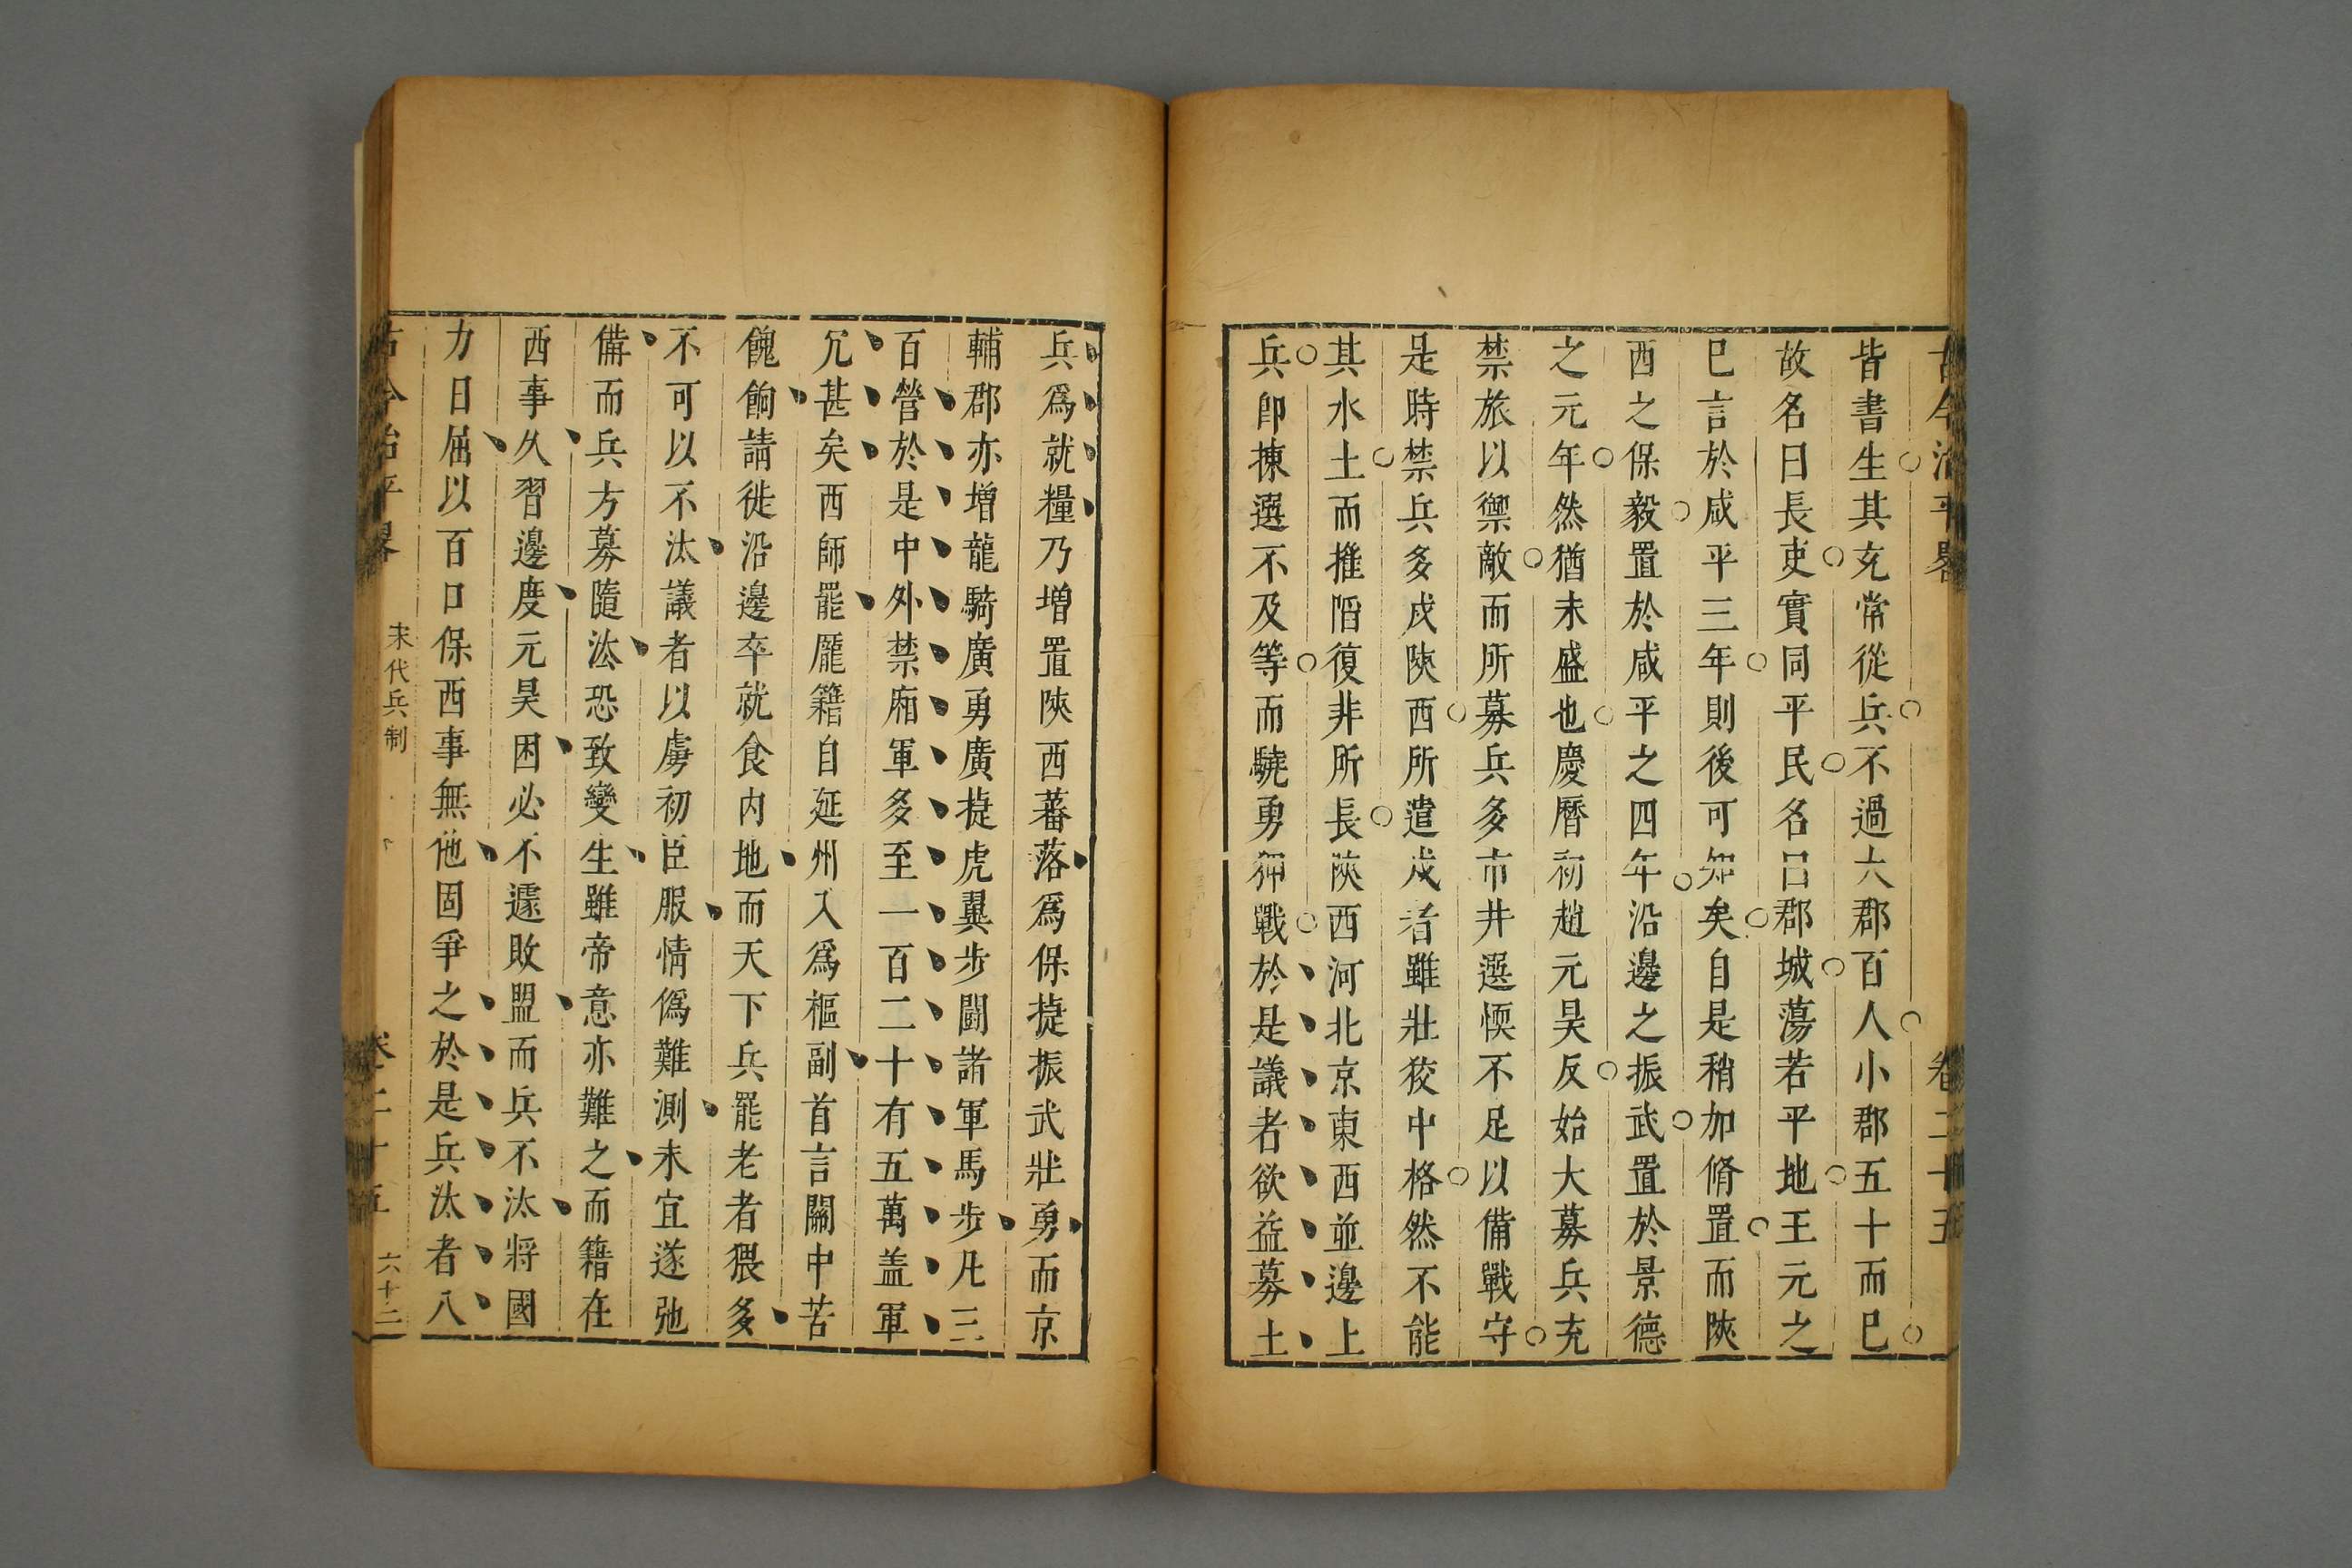 古今治平畧 卷二十五
皆書生其充常從兵不過大郡百人小郡五十而巳
故名曰長吏實同平民名曰郡城蕩若平地王元之
巳言於咸平三年則後可知矣自是稍加脩置而陝
西之保毅置於咸平之四年沿邊之振武置於景德
之元年然猶未盛也慶曆初趙元昊反始大募兵充
禁旅以禦敵而所募兵多市井選愞不足以備戰守
是時禁兵多戍陝西所遣戍者雖壯狡中格然不能
其水土而推陷復非所長陝西河北京東西並邊上
兵卽揀選不及等而驍勇狎戰於是議者欲益募土
兵爲就糧乃增置陝西蕃落爲保捷振武壯勇而京
輔郡亦增龍騎廣勇廣捷虎翼步鬬諸軍馬步凡三
百營於是中外禁廂軍多至一百二十有五萬盖軍
冗甚矣西師罷龐籍自延州入爲樞副首言關中苦
餽餉請徙沿邊卒就食内地而天下兵罷老者猥多
不可以不汰議者以虜初臣服情僞難測未宜遂弛
備而兵方募隨汰恐致變生雖帝意亦難之而籍在
西事久習邊度元昊困必不遽敗盟而兵不汰將國
力日屈以百口保西事無他固爭之於是兵汰者八
古今治平畧 宋代兵制 卷二十五 六十二